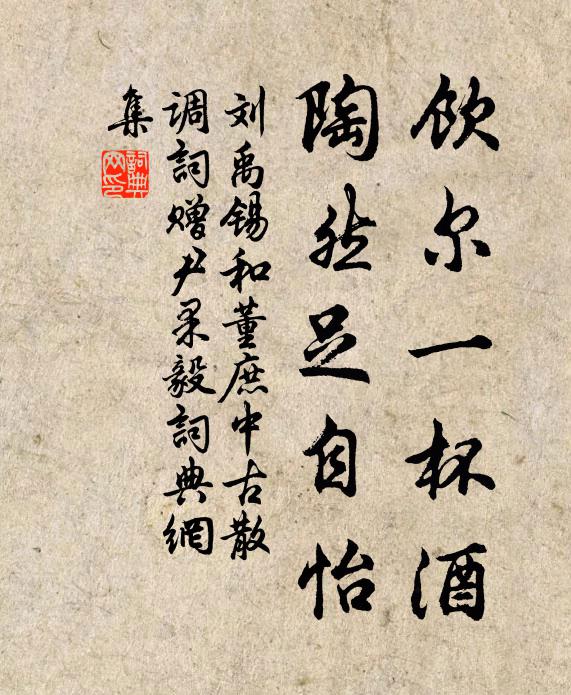 饮尔一杯酒
陶然足自怡
刘禹锡和董庶中古散
调詞赠尹果毅詞典網
集
詞典
网印